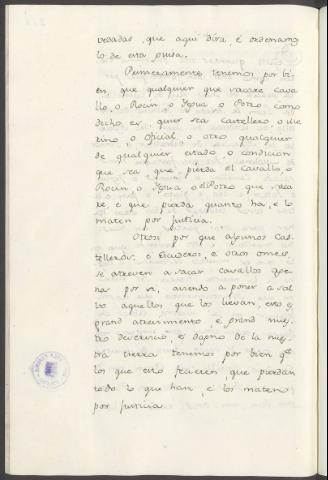 vedadas, que aqui dira, é ordenamo
lo de esta guisa.
Primeramente tenemos por bi-
en, que qualquier que sacare cava
llo, o Rocin, o Yegua, o Potro como
dicho es, quier sea Castellero, o Me
rino, o oficial, o otro qualquier
de qualquier estado, o condicion
que sea que pierda el cavallo, o
Rocin, o Yegua, o el Potro que saca
re, é que pierda quanto ha, e lo
maten por justicia.
Otrosi por que algunos Cas-
telleros, e Escuderos, e otros omes,
se atreven a sacar cavallos que-
nas por si, aviendo a poner a sal
bo aquellos que los lievan, esto es
grand atrevimento, é grand nues-
tro deservicio, e dapno de la nues
tra tierra tenemos por bien qe
los que esto fecieren, que pierdan
todo lo que han, e los maten
por justicia.